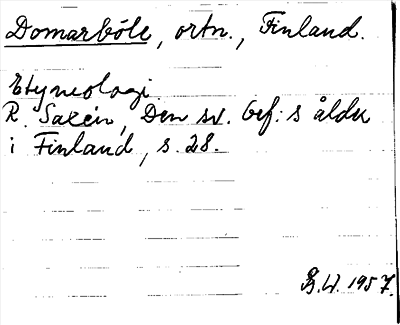 Domarböle, ortn., Finland.
Etymologi
R. Saxén, Den sv. bef:s ålder
i Finland, s. 28.
B.W. 1957.